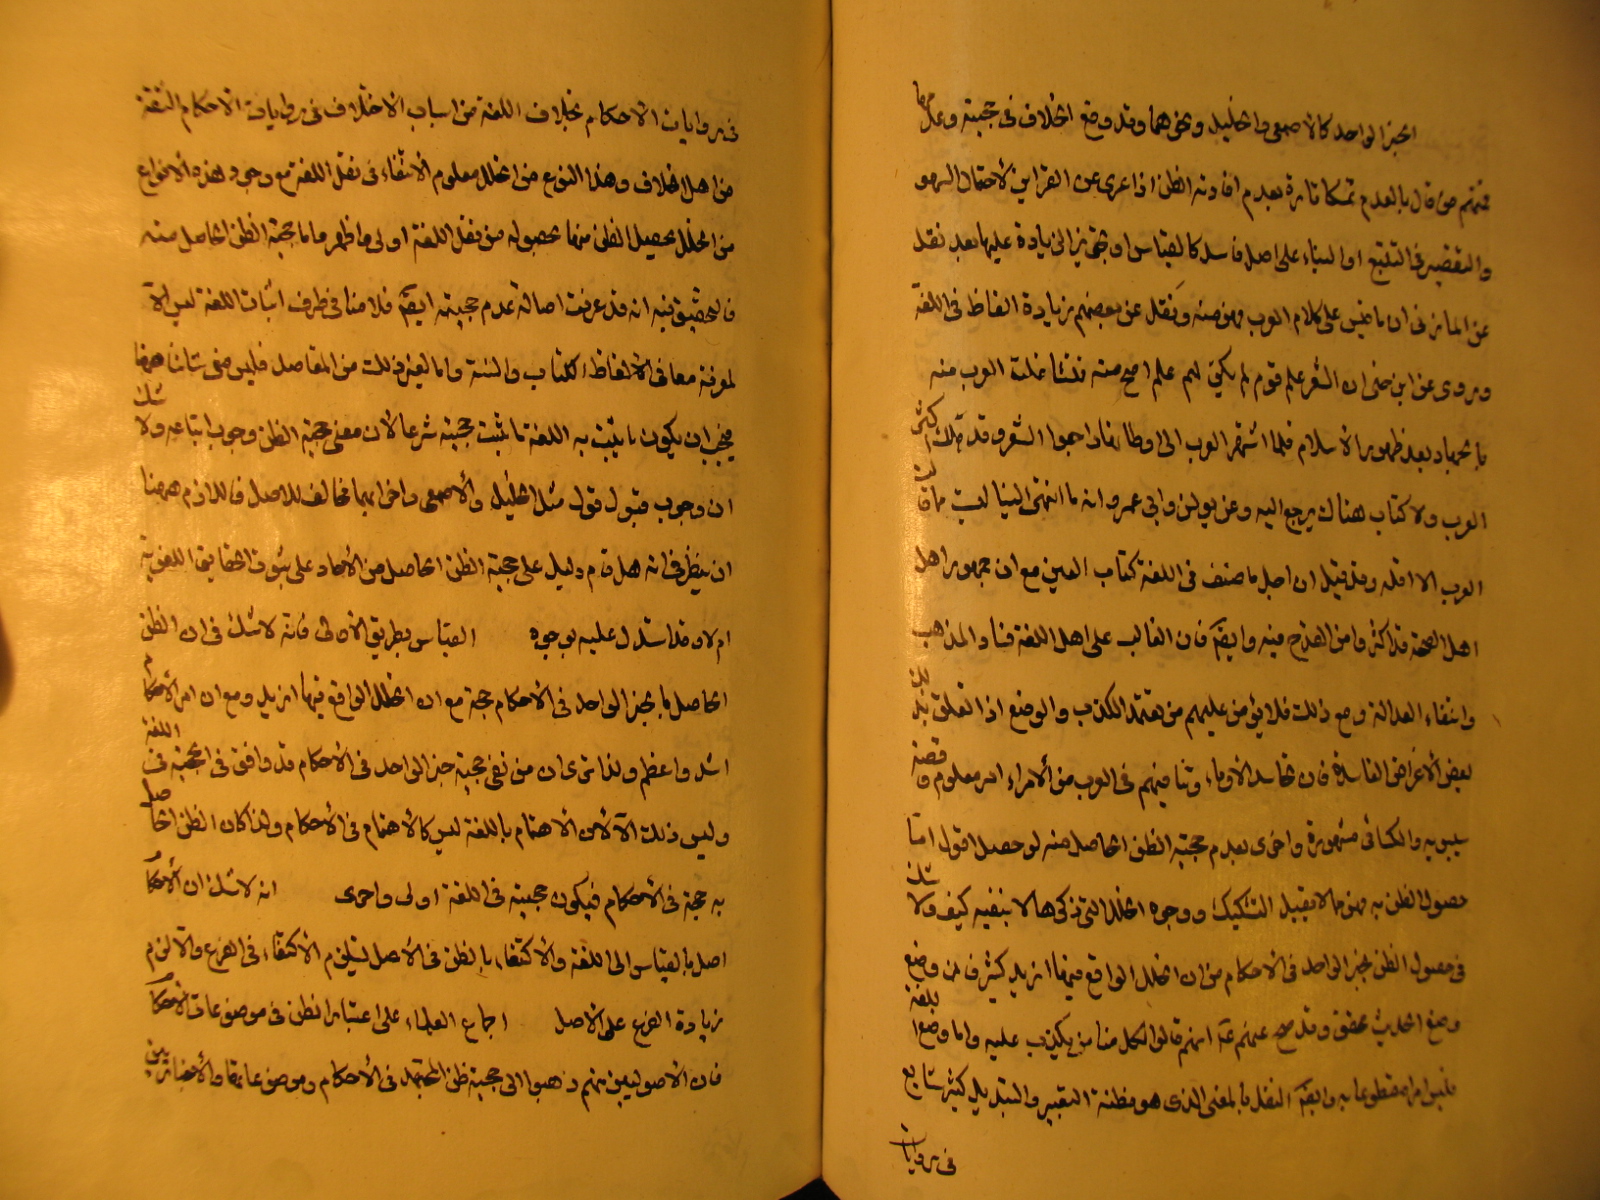 الخبر الواحد كالاصمعى والخليل ونحوهما وقد وقع الخلاف فى حجيته وعدمها
فمنهم من قال بالعدم تمسكا تارة بعدم افادته الظن اذا عرى عن القراين لاحتمال السهو
والتقصير فى التتبع او البناء على اصل فاسد كالقياس او تجويز الزيادة عليها بعد نقل
عن المازنى ان ما قيس على كلام العرب فهو منه ونقل عن بعضهم زيادة الفاظ فى اللغة
وروى عن ابن جنى ان الشعر علم قوم لم يكن لهم علم اصح منه فتشاغلت العرب منه
بالجهاد بعد ظهور الاسلام فلما استقر العرب الى اوطانها راجعوا الشعر وقد هلك اكثر
العرب ولا كتاب هناك يرجع اليه وعن يونس وابى عمرو انه ما انتهى الينا مما قالت
العرب الا اقله وقد قيل ان اجل ما صنف فى اللغة كتاب العين مع ان جمهور اهل
اهل الصحة قد اكثروا من القدح فيه وايضا فان الغالب على اهل اللغة فساد المذهب
وانتفاء العدالة ومع ذلك فلا يؤمن عليهم من تعمد الكذب والوضع اذا تعلق بذلك
بعض الأغراض الفاسدة فان تحاسد الأدباء وتنافيهم فى القرب من الأمراء امر معلوم وقصة
سيبويه والكسائى مشهورة واخرى بعدم حجية الظن الحاصل منه لو حصل اقول اما
حصول الظن به فهو مما لا يقبل التشكيك ووجوه الخلل التى ذكرها لا ينفيه كيف ولا شك
فى حصول الظن بخبر الواحد فى الاحكام من ان الخلل الواقع فيها ازيد بكثير فان وضع
وضع الحديث محقق وقد صح عنهم انهم قالوا لكل منا من يكذب عليه واما وضع اللغة
فليس امرا مقطوعا به وايضا النقل بالمعنى الذى هو مظنة التغيير والتبديل كثير شايع
فى روايات
فى روايات الاحكام بخلاف اللغة من اسباب الاختلاف فى روايات الاحكام التقية
من اهل الخلاف وهذا النوع من الخلل معلوم الانتفاء فى نقل اللغة مع وجود هذه الأنواع
من الخلل يحصل الظن منها فحصوله من نقل اللغة اولى واظهر واما حجية الظن الحاصل منه
فالتحقيق فيه انه قد عرفت اصالة عدم حجيته ايضا فلا مناص فى طرف اثبات اللغة ليس الا
لمعرفة معانى الألفاظ الكتاب والسنة واما لغير ذلك من المقاصد فليس من شاننا ههنا
فيجب ان يكون ما يثبت به اللغة ما يثبت حجيته شرعا لأن معنى حجية الظن وجوب اتباعه ولا شك
ان وجوب قبول قول مثل الخليل والأصمعى واضرابهما مخالف للاصل فاللازم ههنا
ان ينظر فى انه هل قام دليل على حجية الظن الحاصل من الآحاد على ثبوت الحقايق اللغوية
ام لا وقد استدل عليه بوجوه القياس بطريق الأولى فانه لا شك فى ان الظن
الحاصل بالخبر الواحد فى الأحكام حجة مع ان الخلل الواقع فيها ازيد ومع ان امر الأحكام
اشد واعظم ولذا ترى ان من نفى حجية خبر الواحد فى الأحكام قد وافق فى الحجية فى اللغة
وليس ذلك الا لأن الاهتمام باللغة ليس كالأهتمام فى الأحكام ولذا كان الظن الحاصل
به حجة فى الأحكام فيكون حجيته فى اللغة اولى واحرى انه لا شك ان الأحكام
اصل بالقياس الى اللغة والأكتفاء بالظن فى الأصل يستلزم الاكتفاء فى الفرع والا لزم
زيادة الفرع على الأصل اجماع العلماء على اعتبار الظن فى موضوعات الأحكام
فان الأصوليين منهم ذهبوا الى حجية ظن المجتهد فى الأحكام وموضوعاتها والأخباريين